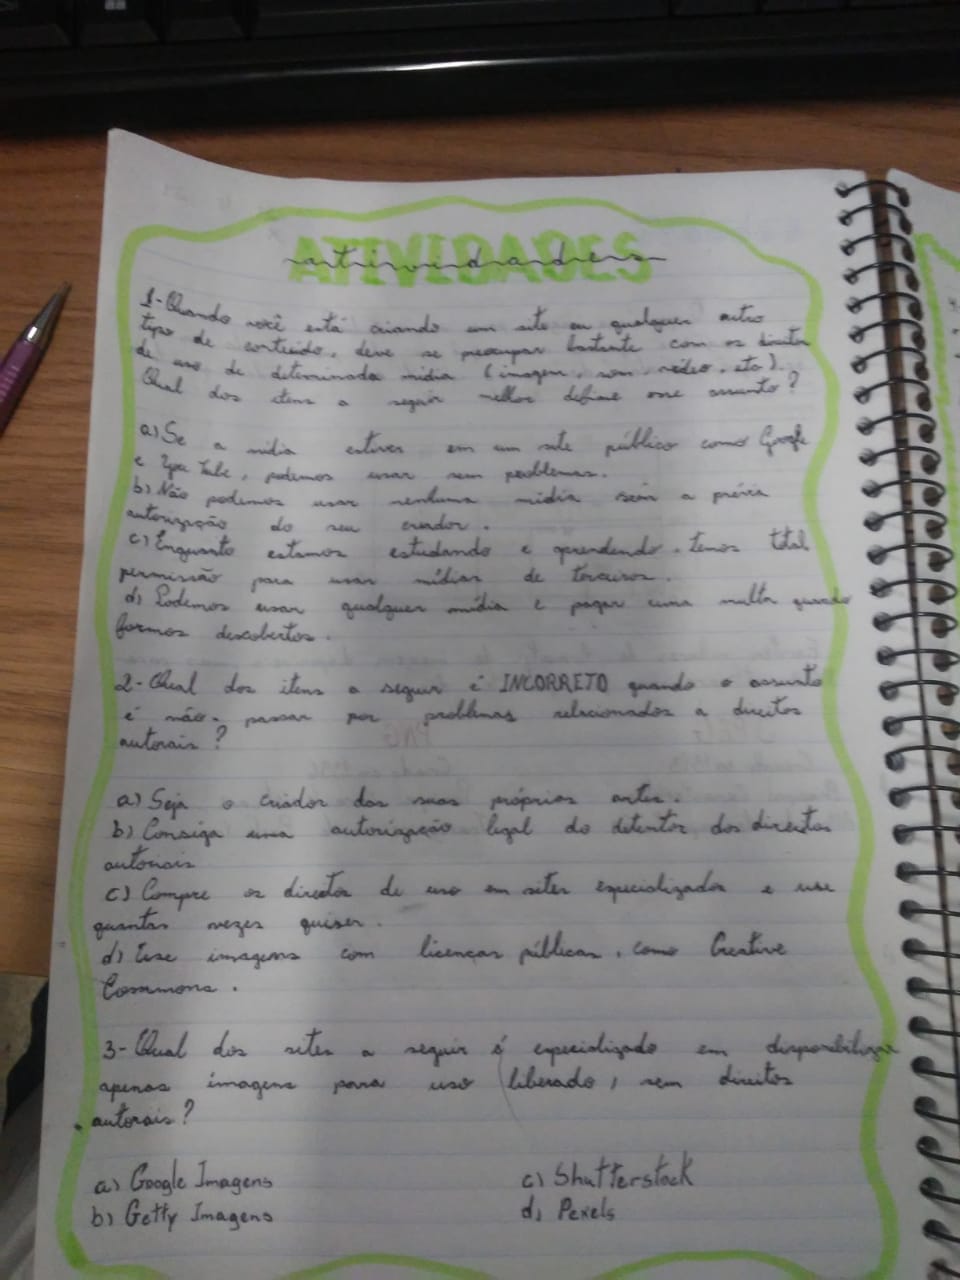 ATIVIDADES
atividades
1- Quando você está criando um site ou qualquer outro
tipo de conteúdo, deve se preocupar bastante com os direitos
de uso de determinada mídia (imagem, som, vídeo, etc).
Qual dos itens a seguir melhor define esse assunto?
a) Se a mídia estiver em um site público como Google
e You Tube, podemos usar sem problemas.
b) Não podemos usar nenhuma mídia sem a prévia
autorização do seu criador.
c) Enquanto estamos estudando e aprendendo, temos total
permissão para usar mídias de terceiros.
d) Podemos usar qualquer mídia e pagar uma multa quando
formos descobertos.
2- Qual dos itens a seguir é INCORRETO quando o assunto
é não passar por problemas relacionados a direitos
autorais?
a) Seja o criador das suas próprias artes.
b) Consiga uma autorização legal do detentor dos direitos
autorais
c) Compre os direitos de uso em sites especializados e use
quantas vezes quiser.
d) Use imagens com licenças públicas, como Creative
Commons.
3- Qual dos sites a seguir é especializado em disponibilizar
apenas imagens para uso liberado, sem direitos
autorais?
a) Google Imagens
c) Shutterstock
b) Getty Imagens
d) Pexels